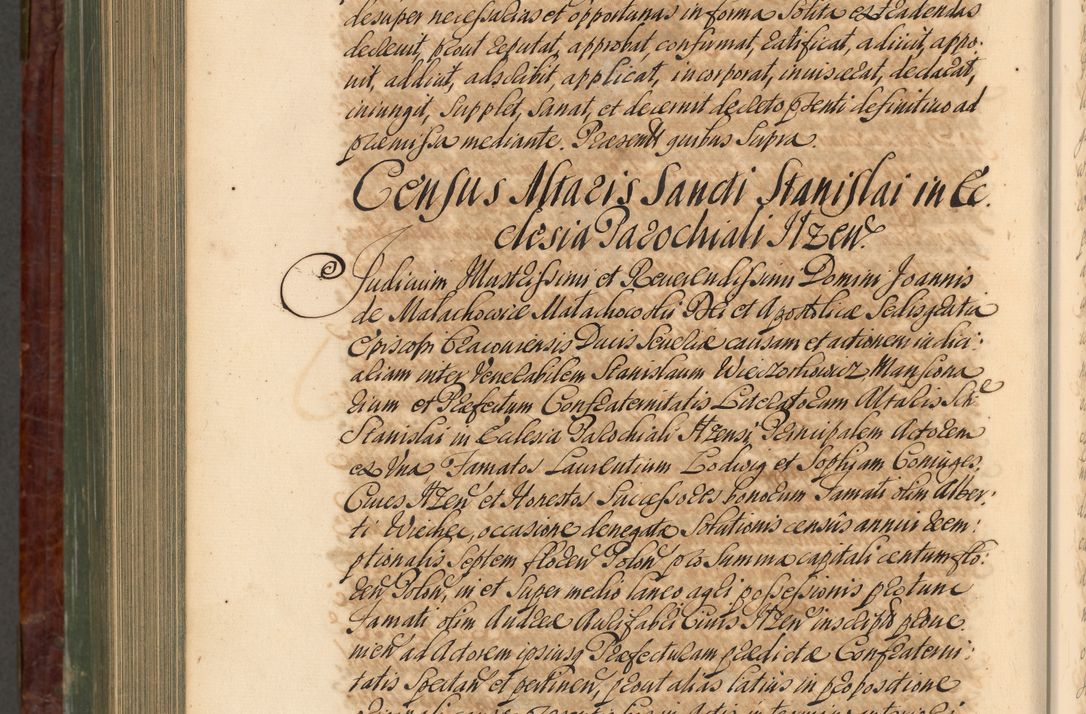 desuper necessarias et opportunas in forma solita extradendas
decrevit, prout reputat, approbat, confirmat, ratificat, adiicit, appo-
nit, addicit, adscribit, applicat, incorporat, inviscerat, declarat,
iniungit, supplet, sanat, et decernit decreto pnti definitivo ad
praemissa mediante. Praesentt quibus supra.
Census Altaris Sancti Stanislai in Ec-
clesia Parochiali Itzen.
Iudicium Illustrissimi et Reverendissimi Domini Joannis
de Małachowice Małachowski Dei et Apostolicae Sedis gratia
Episcopi Cracoviensis Ducis Severiae causam et actionem iudici-
aliam inter Venerabilem Stanislaum Wieczorkowicz Mansiona
rium et Praefectum Confraternitatis Literatorum Altaris Sti
Stanislai in Ecclesia Parochiali Itzensi Principalem Actorem
ex Una Famatos Laurentium Lodwig et Sophiam Coniuges
Cives Itzen et Honestos Successores bonorum Famati olim Alber-
ti Wiecher, occasione denegatae solutionis censûs annui reem-
ptionalis septem floren Polon pro summa capitali centum flo-
ren Polon, in et super medio laneo agri possessionis pro tunc
Famati olim Andreae Aurifabri Civis Itzen inscripti prove-
nien ad Actorem ipsiusq Praefecturam praedictae Confraterni-
tatis spectan et pertinen, prout alias latius in propositione